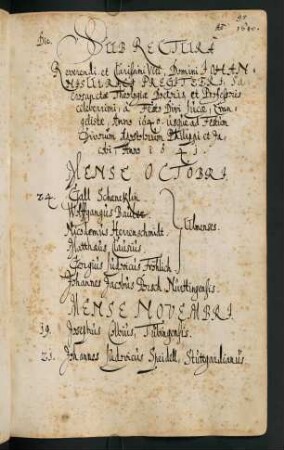 Die.
SUB RECTURA
Reverendi et Clarissimi Viri, Domini JOHAN-
NIS ULRICI PREGITZERI, Sa-
crosanctæ Theologiæ Doctoris et Professoris
celeberrimi, à Festo Divi Lucæ, Evan-
gelistæ Anno 1640. usque ad Festum
Divorum Apostolorum Philippi et Ja-
cobi, Anno 1 6 4 1.
MENSE OCTOBRI
24. Gall Schencklin
Wolffgangus
Nicolaus Herrenschmidt
Matthæus Clausius
Georgius Ludovicus Frölich
Ulmenses.
Johannes Jacobus Nürttingensis.
MENSE NOVEMBRI.
19. Josephus Tübingensis.
21. Johannes Ludovicus Speidell, Stuttgardianus.